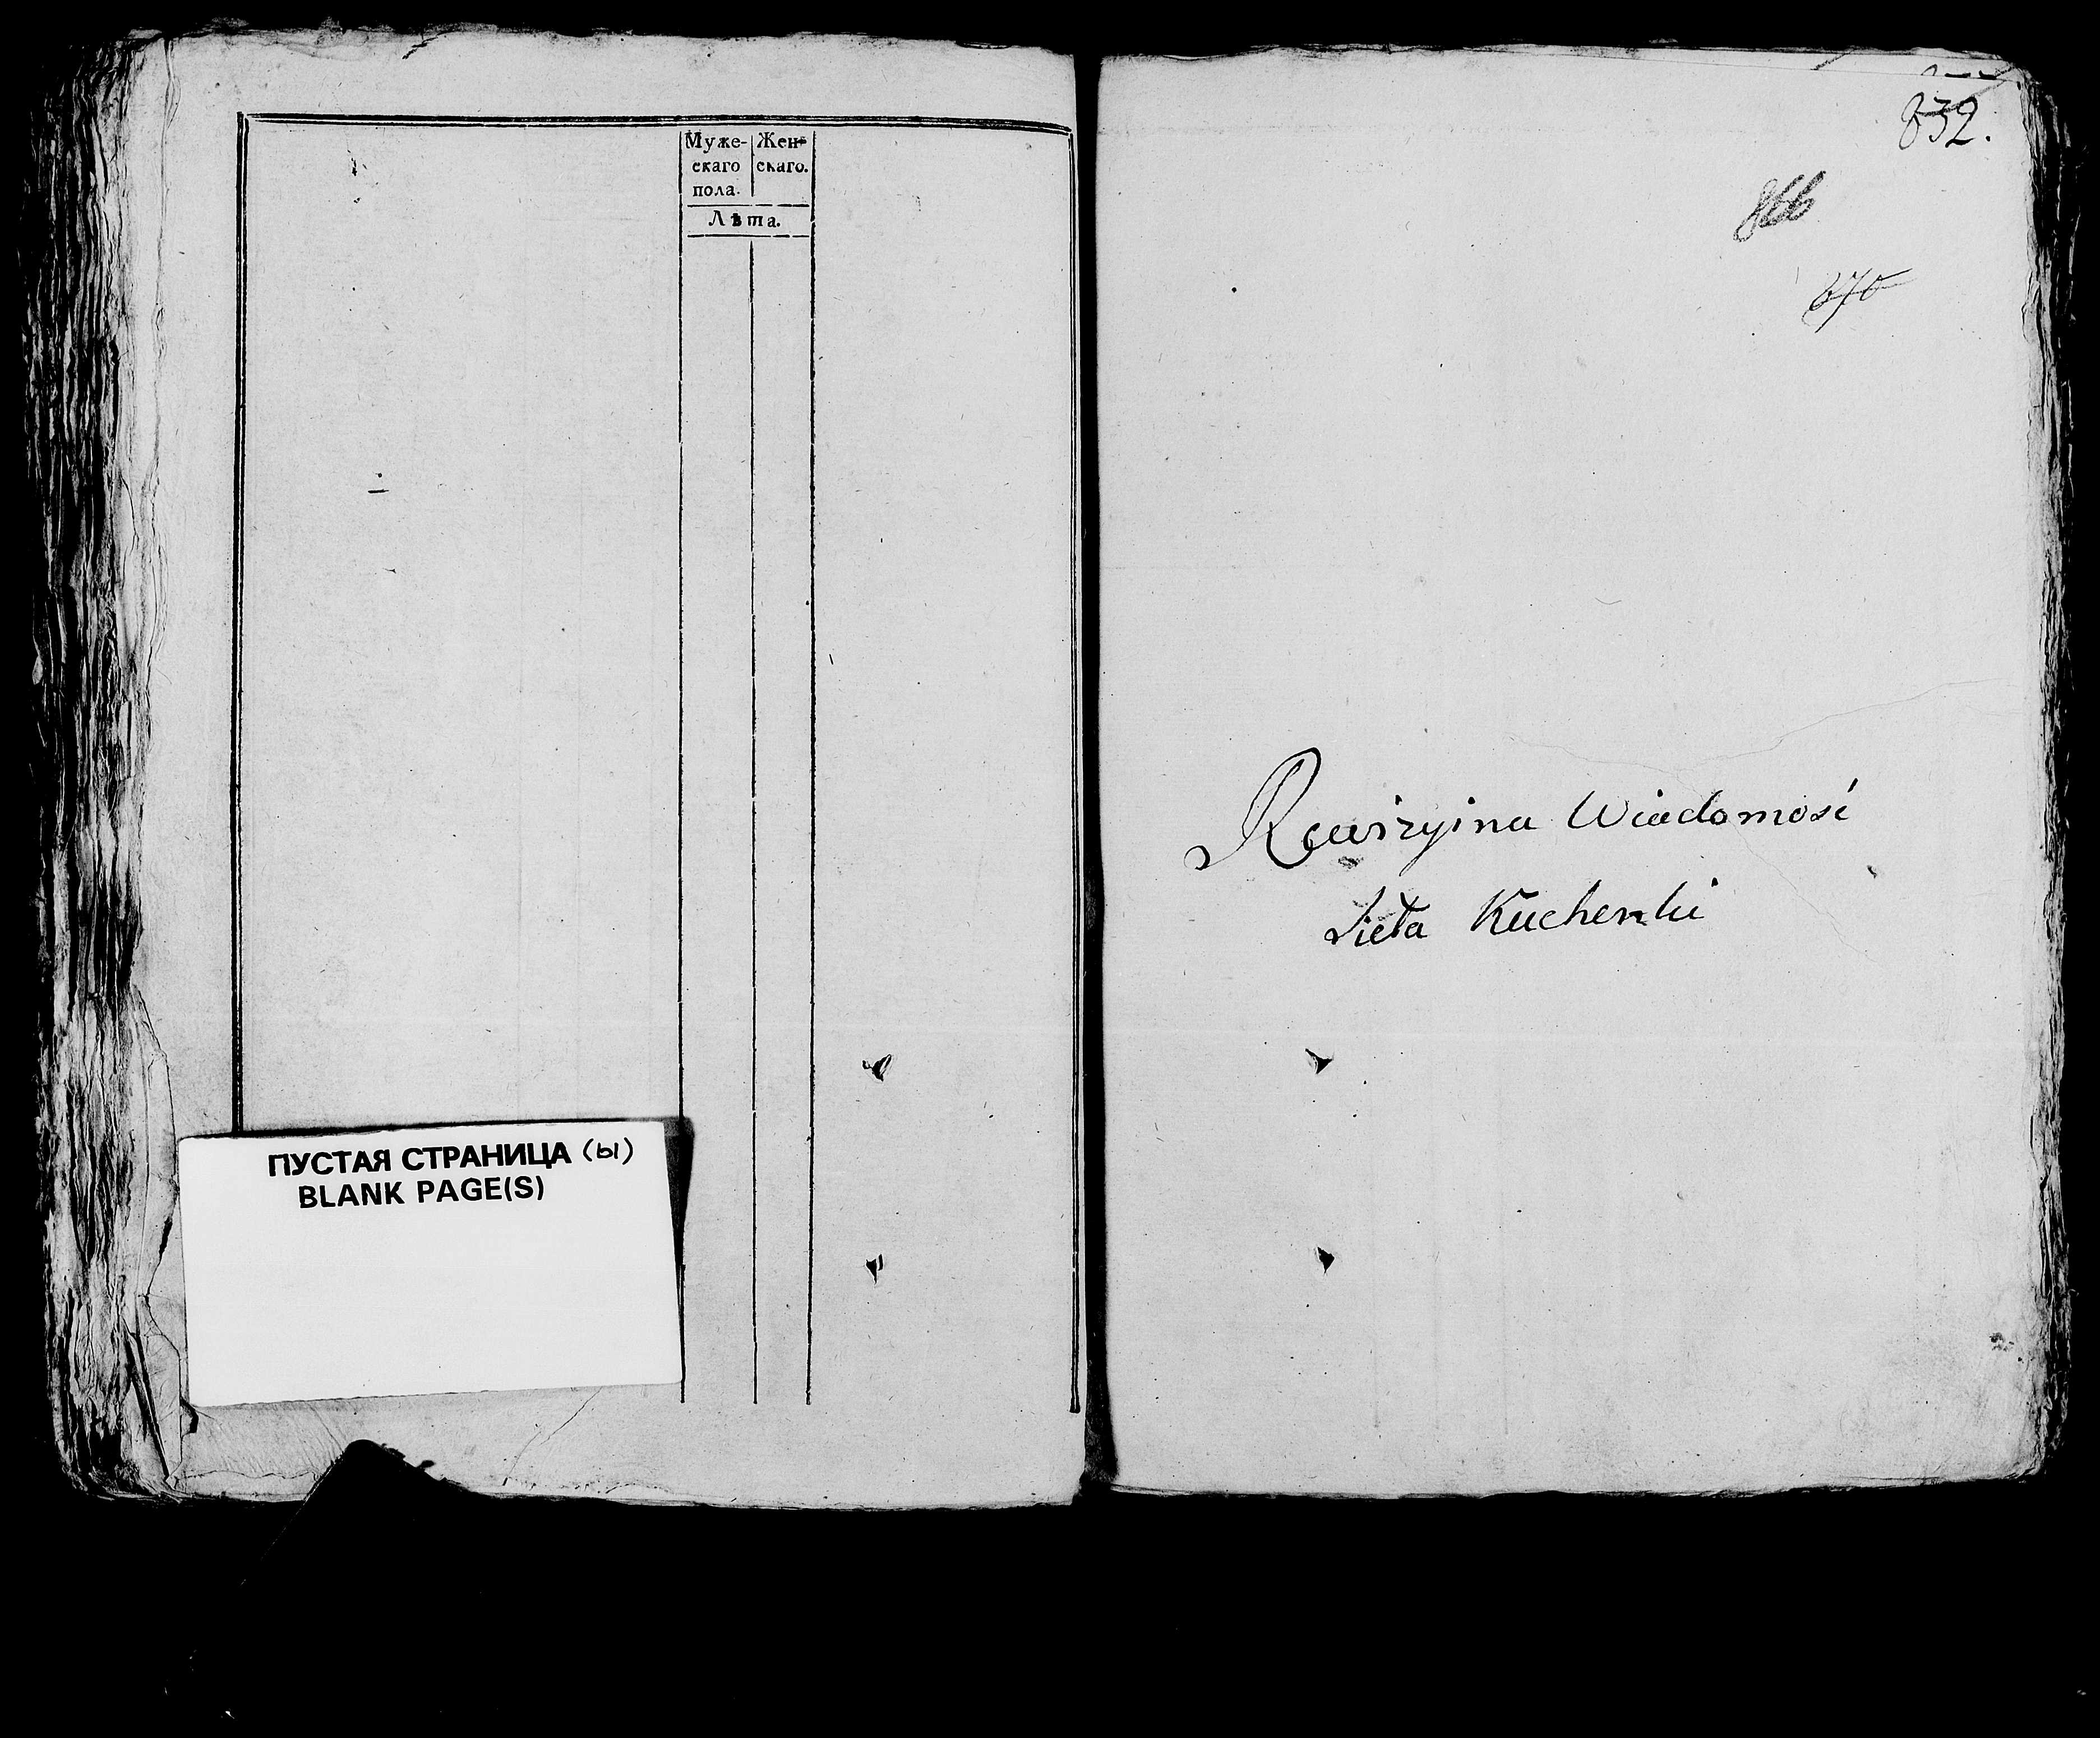 Муже-
скаго
пола.
Жен-
скаго.
Лѣта.
ПУСТАЯ СТРАНИЦА (ы)
BLANK PAGE(S)
832.
866
870
Rewizyina Wiadomość
Sieła Kuchenki